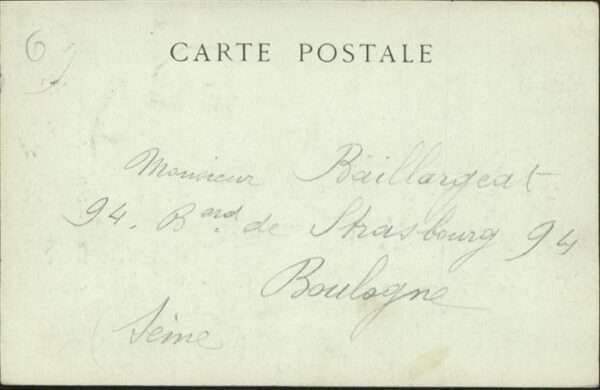 6
CARTE POSTALE
Monsieur Baillargeat
94. Bard. de Strasbourg 94
Boulogne
(Seine